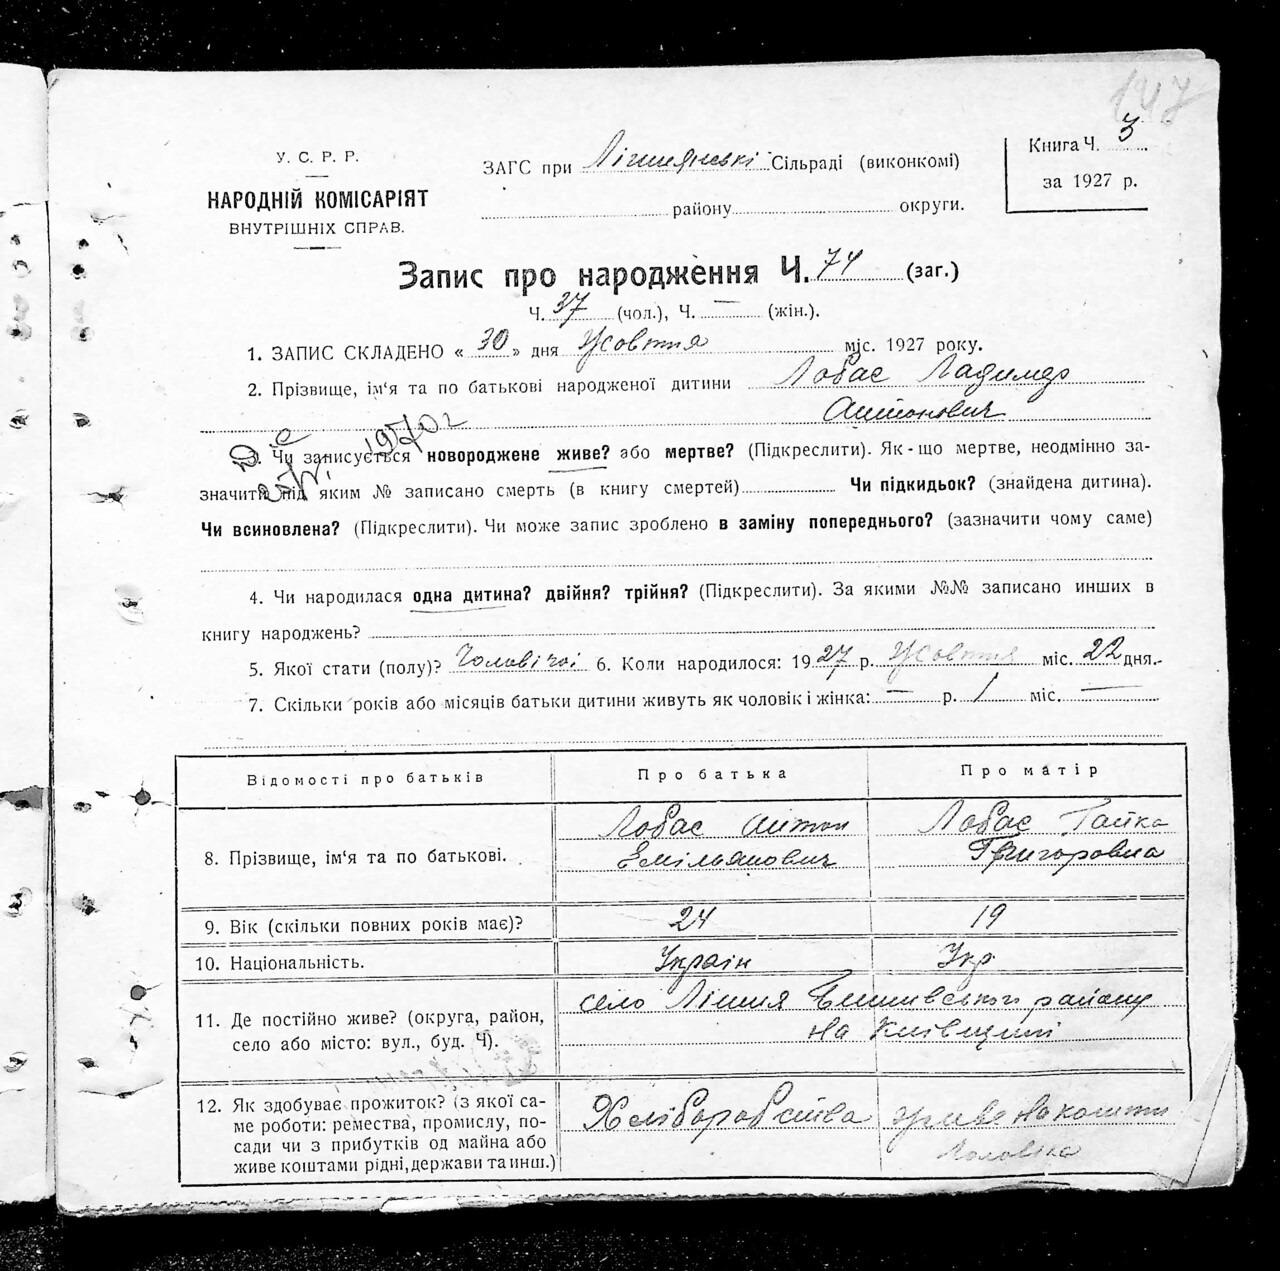 147
У. С. Р. Р.
НАРОДНІЙ КОМІСАРІЯТ
ВНУТРІШНІХ СПРАВ.
ЗАГС при Лішнянські Сільраді (виконкомі)
району округи.
Книга Ч. 3
за 1927 р.
Запис про народження Ч. 74 (заг.)
Ч. 37 (чол.), Ч. — (жін.).
1. ЗАПИС СКЛАДЕНО « 30 » дня Жовтня міс. 1927 року.
2. Прізвище, ім'я та по батькові народженої дитини Лобас Ладимер
Антонович
1970 г
3. Чи записується новороджене живе? або мертве? (Підкреслити). Як-що мертве, неодмінно за-
значити під яким № записано смерть (в книгу смертей) Чи підкидьок? (знайдена дитина).
Чи всиновлена? (Підкреслити). Чи може запис зроблено в заміну попереднього? (зазначити чому саме)
4. Чи народилася одна дитина? двійня? трійня? (Підкреслити). За якими №№ записано инших в
книгу народжень?
5. Якої стати (полу)? Чоловічої 6. Коли народилося: 1927 р. Жовтня міс. 22 дня.
7. Скільки років або місяців батьки дитини живуть як чоловік і жінка: — р. 1 міс. —
Відомості про батьків Про батька Про матір
8. Прізвище, ім'я та по батькові. Лобас Антон Лобас Гапка
Емільянович Григоровна
9. Вік (скільки повних років має)? 24 19
10. Національність. Україн Укр
11. Де постійно живе? (округа, район, село Лішня Бишівського району
село або місто: вул., буд. Ч). на Київщині
12. Як здобуває прожиток? (з якої са- Хліборобства живе на кошти
ме роботи: ремества, промислу, по- чоловіка
сади чи з прибутків од майна або
живе коштами рідні, держави та инш.)